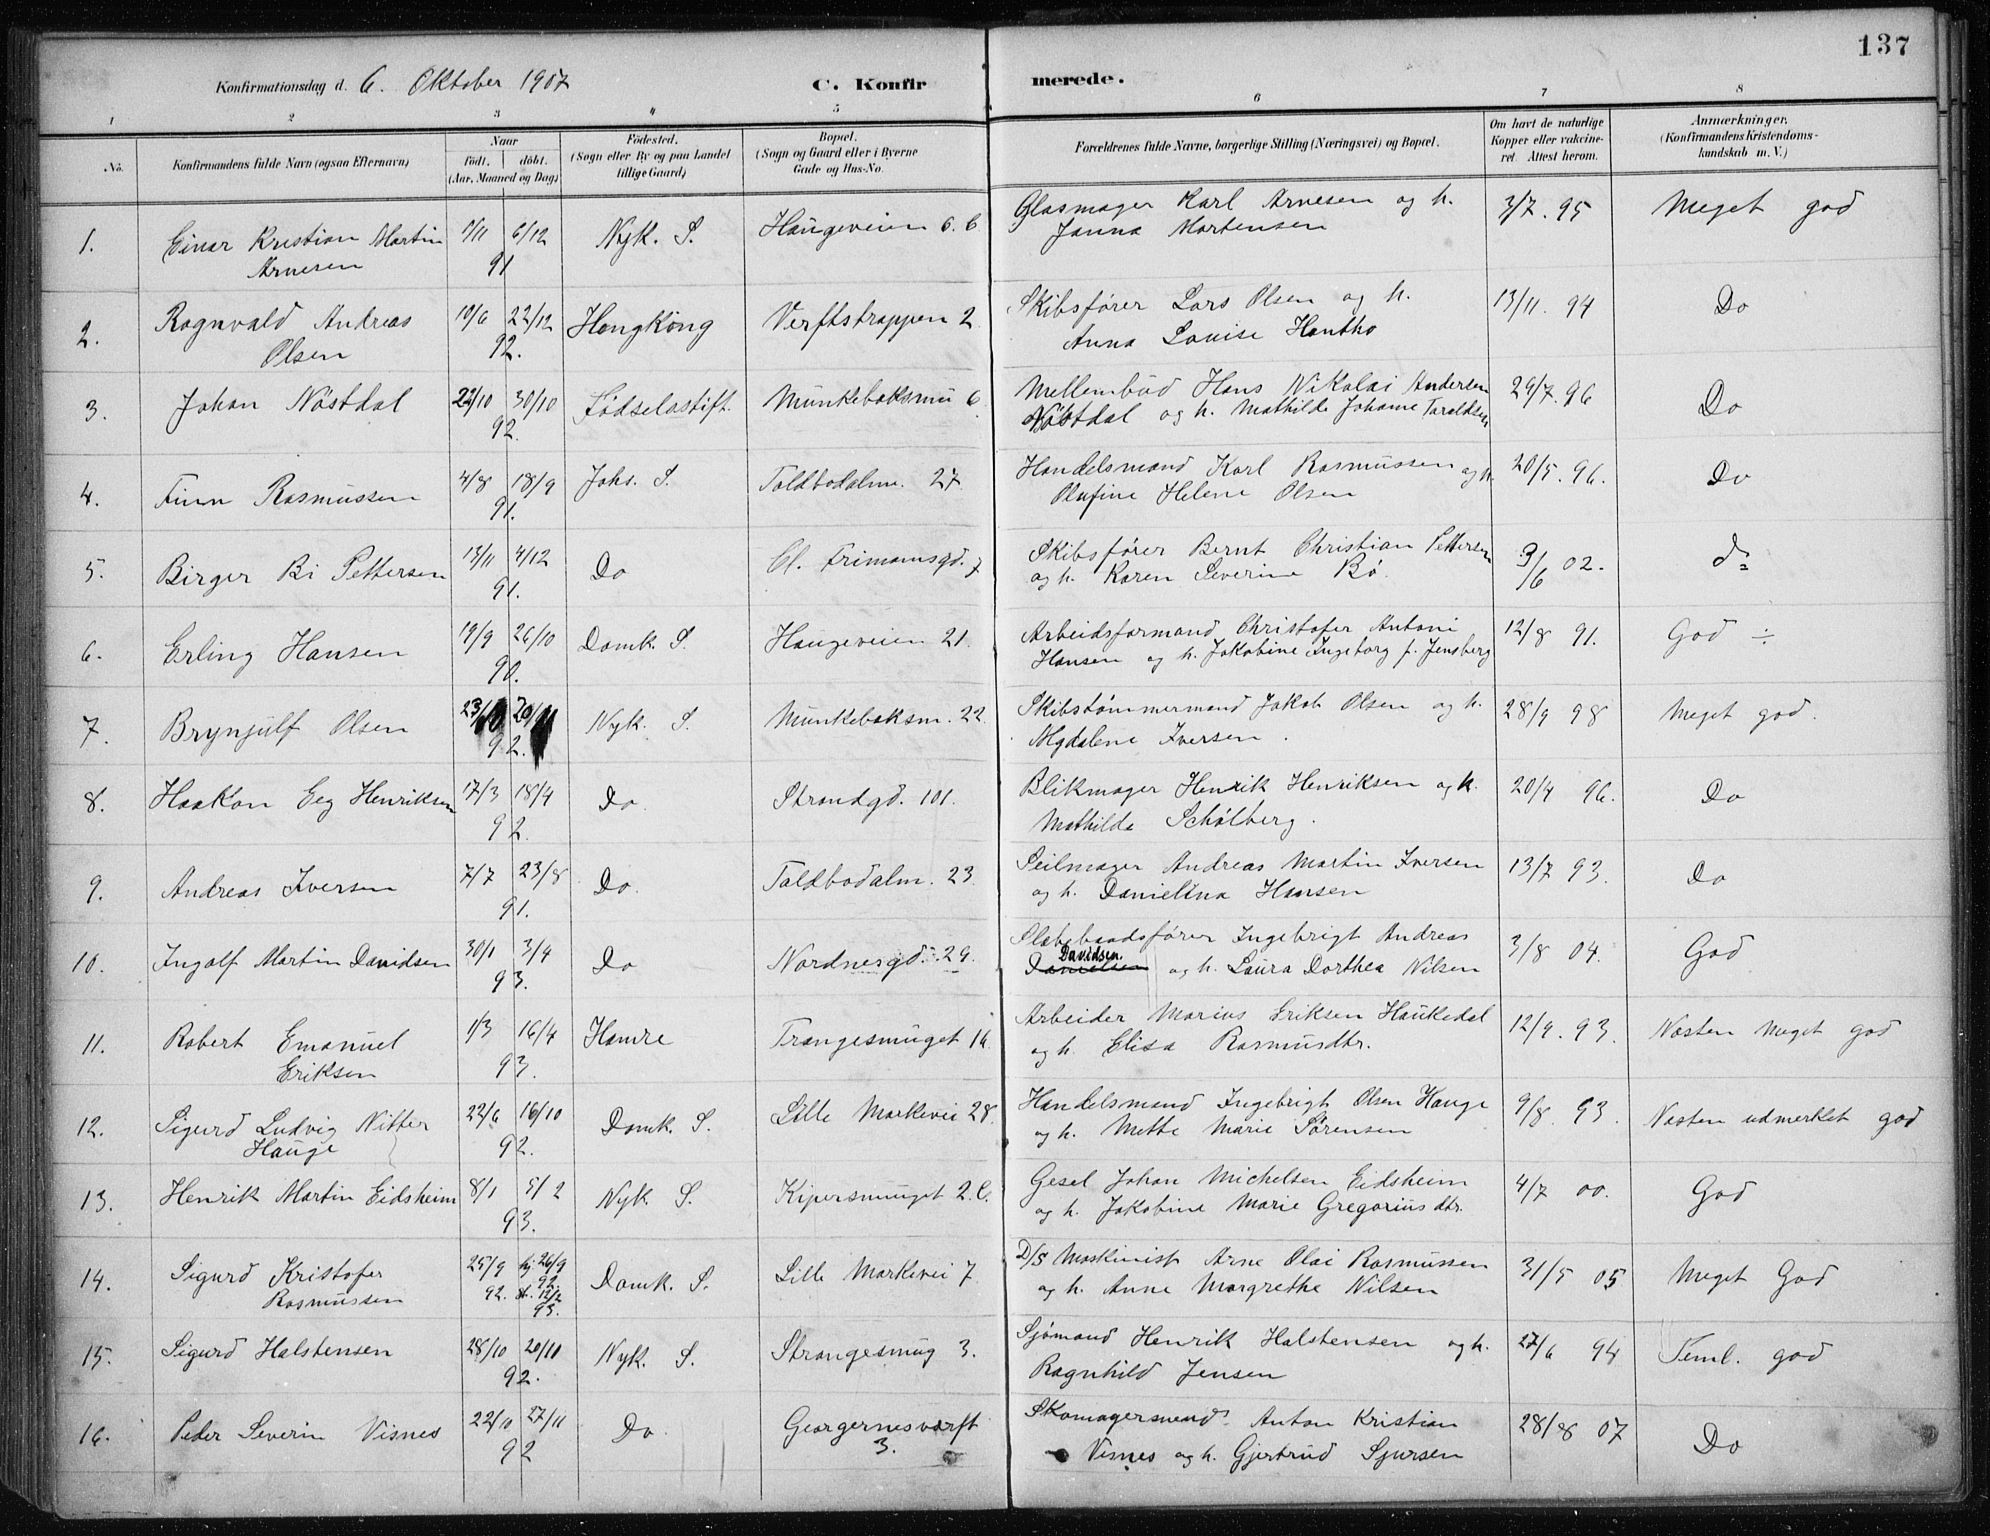 137
Konfirmationsdag d. 6. Oktober 1907 C. Konfir merede.
1 2 3 " 5 6 7 8
No.
Konfirmandens fulde Navn (ogsaa Efternavn)
Naar
födt. döbt.
(Aar, Maaned og Dag)
Födested.
(Sogn eller By og paa Landet
tillige Gaard)
Bopæl.
(Sogn og Gaard eller i Byerne
Gade og Hus-No.
Forældrenes fulde Navne, borgerlige Stilling (Næringsvei) og Bopæl.
Om havt de naturlige
Kopper eller vakcine-
ret Attest herom.
Anmærkninger.
(Konfirmandens Kristendoms-
kundskab m. V.)
1. Einar Kristian Martin 1/11 6/12 Nyk. S. Haugeveien 6. b Glasmager Karl Arnesen og h. 3/7. 95 Meget god
Arnesen 91 Janna Martensen
2. Ragnvald Andreas 19/6 22/12 HongKong Verftstrappen 2 Skibsfører Lars Olsen og h. 13/11. 94 Do
Olsen 92. Anna Louise Hantho
3. Johan Nöstdal 22/10 30/10 Födselsstift. Munkebaksmu 6 Mellembud Hans Nikolai Andersen 29/7. 96 Do
92. Nöstdal og h. Mathilde Johanne Taraldsen
4. Finn Rasmussen 4/8 18/9 Johs. S. Toldbodalm. 27 Handelsmand Karl Rasmussen og h. 20/5. 96. Do
91. Olufine Helene Olsen
5. Birger Bi Pettersen 13/11 4/12 Do Cl. Frimannsgd. 7 Skibsfører Bernt Christian Pettersen 3/6 02. do
91. og h. Karen Severine Bö.
6. Erling Hansen 19/9 26/10 Domk. S. Haugeveien 21. Arbeidsformand Christofer Antoni 12/8 91. God ÷
90. Hansen og h. Jakobine Ingeborg f. Jensberg
7. Brynjulf Olsen 23/10 20/11 Nyk. S. Munkebaksm. 22. Skibstømmermand Jakob Olsen og h. 28/9 98 Meget god.
92. Magdalene Iversen.
8. Haakon Eeg Henriksen 17/3 18/4 Do. Strandgd. 101. Blikmager Henrik Henriksen og h. 20/4 96. Do
92. Mathilde Schölberg.
9. Andreas Iversen 7/7 23/8 Do. Toldbodalm. 23. Seilmager Andreas Martin Iversen 13/7 93. Do
91. og h. Danielina Hansen
10. Ingolf Martin Davidsen 30/1 3/4 Do Nordnesgd. 29. Slæbebaadsfører Ingebrigt Andreas 3/8 04. God
93. Davidsen. Danielsen og h. Laura Dorthea Nilsen
11. Robert Emanuel 1/3 16/4 Hamre Trangesmuget 16 Arbeider Marius Eriksen Haukedal 12/9. 93. Næsten meget god
Eriksen 93. og h. Elisa Rasmusdtr.
12. Sigurd Ludvig Nitter 22/6 16/10 Domk. S. Lille Markevei 28. Handelsmand Ingebrigt Olsen Hauge 9/8 93. Næsten udmerket god
Hauge 92. og h. Mette Marie Sörensen
13. Henrik Martin Eidsheim 8/1 5/2 Nyk. S. Kipersmuget 2. C. Gesel Johan Michelsen Eidsheim 4/7 00. God
93. og h. Jakobine Marie Gregoriusdtr.
14. Sigurd Kristofer 25/9 hj. 26/9 Domk. S. Lille Markevei 7. D/S Maskinist Arne Olai Rasmussen 31/5 05 Meget God
Rasmussen 92. 92. st. 12/2 93. og h. Anne Margrethe Nilsen
15. Sigurd Halstensen 28/10 20/11 Nyk. S. Strangesmug 3. Sjömand Henrik Halstensen og h. 27/6 94 Teml. god
92. Ragnhild Jensen
16. Peder Severin Visnes 22/10 27/11 Do Georgernesværft Skomagersvend Anton Kristian 28/8 07 Do
92 3. Visnes og h. Gjertrud Sjursen